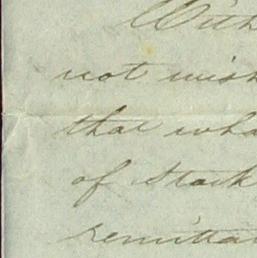 With
not wish
that wha
of Stock
remitta